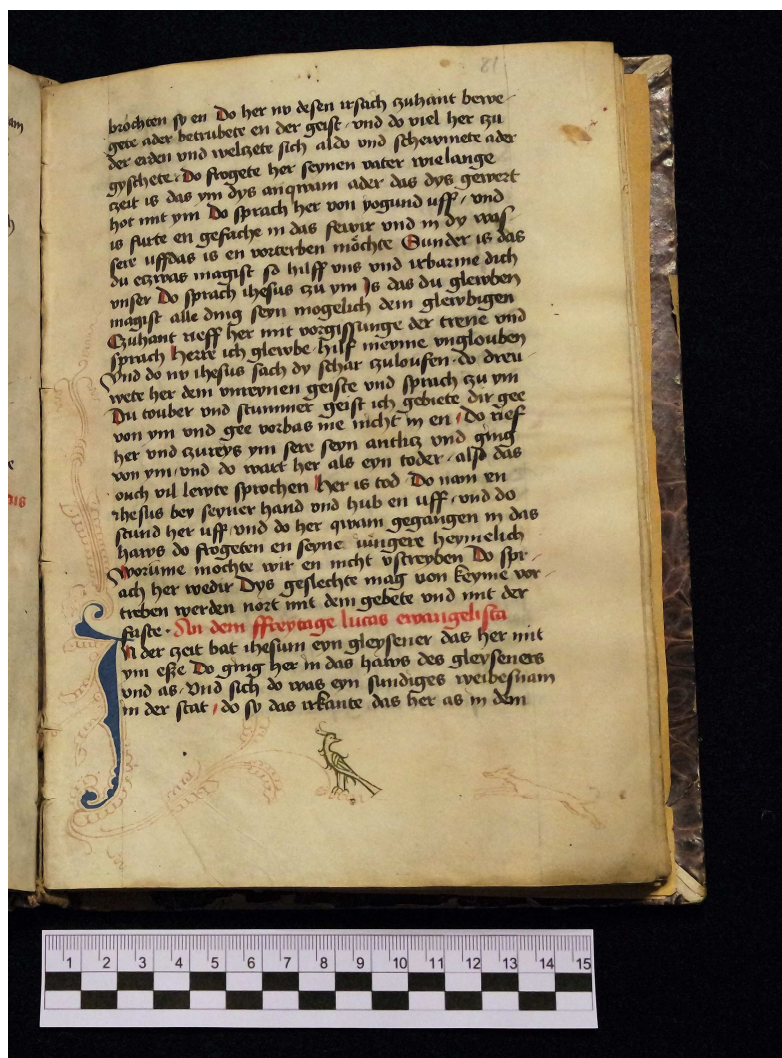 81
brochten sy en Do her nv desen irsach czuhant bewe-
gete ader betrubete en der geist · vnd do viel her czu
der erden vnd welczete sich aldo vnd schewmete ader
gyschete · Do frogete her seynen vater wielange
czeit is das ym dys anqwam ader das dys gewert
hot mit ym Do sprach her von yogund uff / vnd
is furte en gefache in das fewir vnd in dy was-
sere uffdas is en vorterben möchte Sunder is das
du etzwas magist so hilff vns vnd irbarme dich
vnser Do sprach ihesus czu ym Js das du glewben
magist alle ding seyn mogelich dem glewbigen
Czuhant rieff her mit vorgissunge der trene vnd
sprach Herre ich glewbe · hilf meyme vnglouben
Vnd do nv ihesus sach dy schar czuloufen · do drew-
wete her dem vnreynen geiste vnd sprach czu ym
Du touber vnd stummer geist ich gebiete dir gee
von ym vnd gee vorbas nie nicht in en / Do rief
her vnd czureys ym sere seyn antlicz vnd ging
von ym · vnd do wart her als eyn toder · also das
ouch vil lewte sprochen Her is tod Do nam en
ihesus bey seyner hand vnd hub en uff · vnd do
stund her uff · vnd do her qwam gegangen in das
haws do frogeten en seyne iüngere heymelich
Worüme mochte wir en nicht vstreyben Do spr-
ach her wedir Dys geslechte mag von keyme vor-
treben werden nort mit dem gebete vnd mit der
faste · An dem ffreytage lucas ewangelista
Jn der czeit bat ihesum eyn gleysener das her mit
ym eße Do ging her in das haws des gleyseners
vnd as · Vnd sich do was eyn sundiges weibesnam
in der stat / do sy das irkante das her as in dem
1 2 3 4 5 6 7 8 9 10 11 12 13 14 15